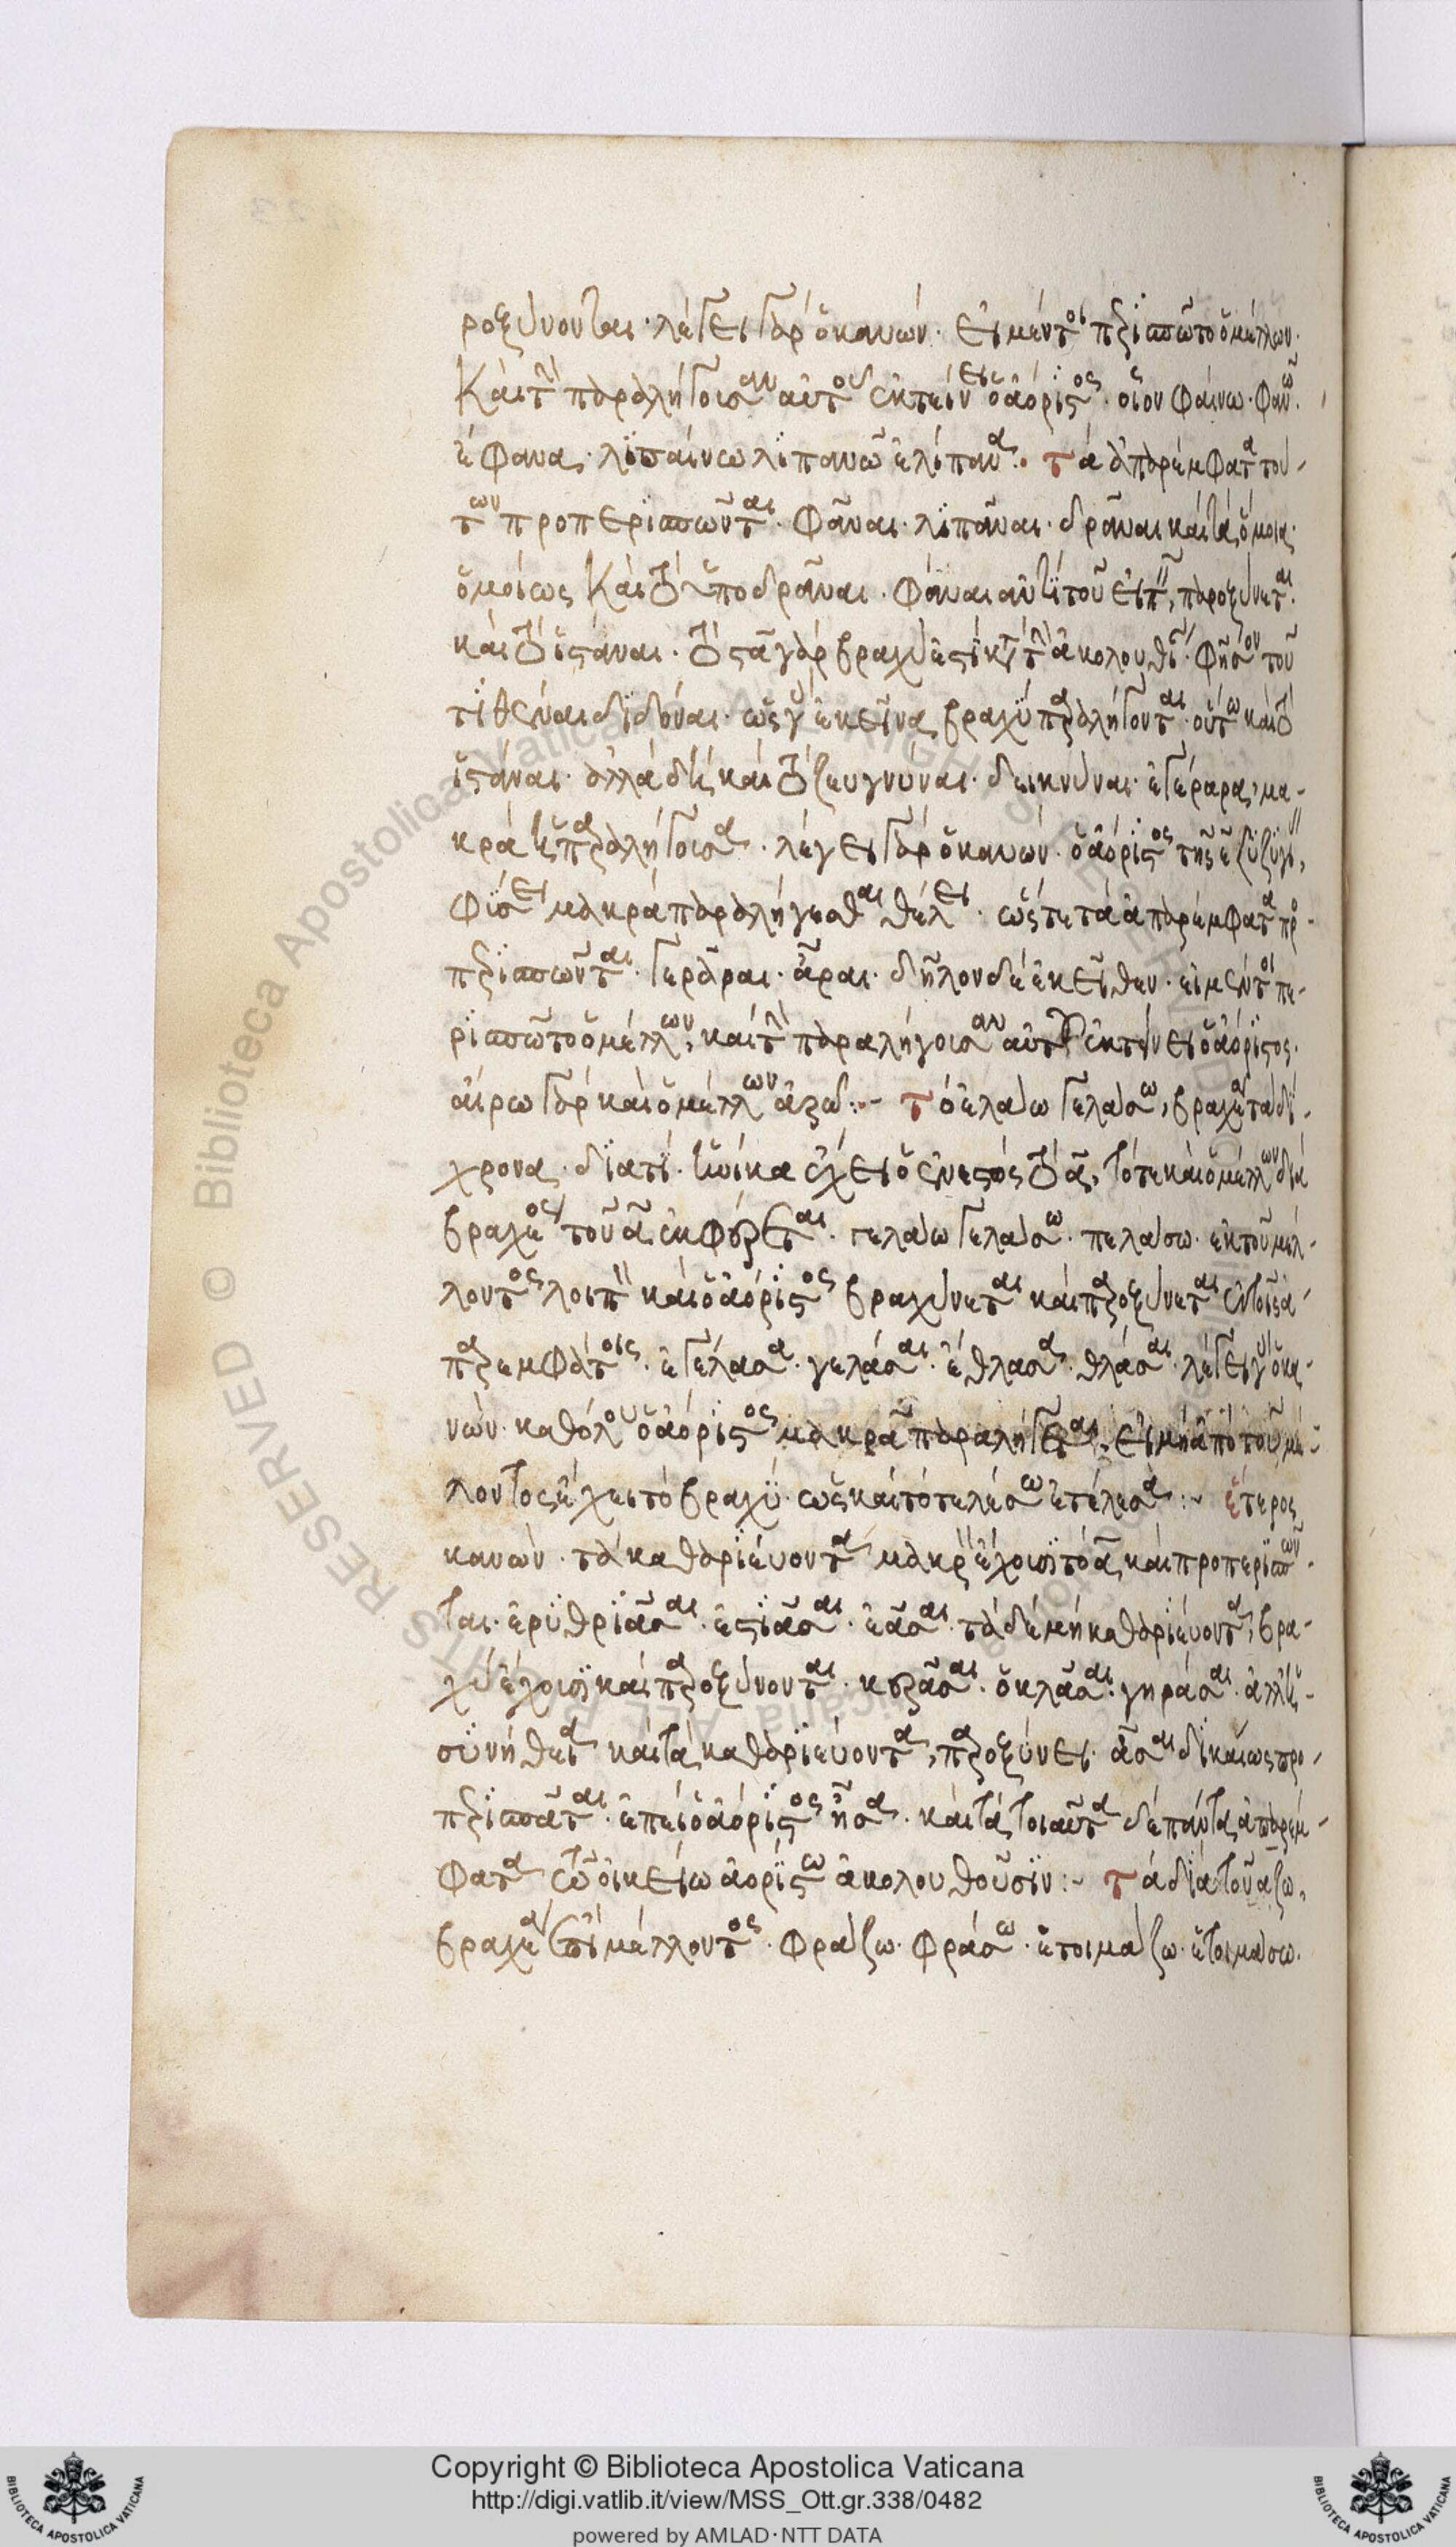 ροξύνονται· λέγει γὰρ ὁ κανών· εἰ μέντοι περισπῶτο ὁ μέλλων·
Καὶ τὴν παραλήγουσαν αὐτοῦ ἐκτείνει ὁ ἀόριστος· οἷον φαίνω· φανῶ·
ἔφανα· λιπαίνω λιπανῶ ἐλίπανα· τὰ ἀπαρέμφατα τού-
των προπερισπῶνται· φᾶναι· λιπᾶναι· δρᾶναι καὶ τὰ ὅμοια·
ὁμοίως Καὶ τὸ ὑποδρᾶναι· φάναι ἀντὶ τοῦ εἰπεῖν, παροξύνεται·
καὶ τὸ ἱστάναι· τὸ γὰρ βραχύ ἐστι ἀκολουθίαν φησὶν τοῦ
τιθέναι διδόναι· ὡς γὰρ ἐκεῖνα βραχὺ παραλήγονται· οὕτω καὶ τὸ
ἱστάναι· ἀλλὰ δὴ καὶ τὸ ζευγνύναι· δεικνύναι· ἐγέραρα, μα-
κρὰ ἡ παραλήγουσα· λέγει γὰρ ὁ κανών· ὁ ἀόριστος τῆς ε συζυγί,
φύσει μακρᾷ παραλήγεσθαι θέλει· ὥστε τὰ ἀπαρέμφατα προ-
περισπῶνται· γερᾶραι· ἆραι· δῆλον δὲ ἐκεῖθεν· εἰ μέντοι πε-
ρισπῶτο ὁ μέλλων, καὶ τὴν παραλήγουσαν αὐτοῦ ἐκτείνει ὁ ἀόριστος·
αἴρω γὰρ καὶ ὁ μέλλων ἀρῶ:- τὸ ἐλάσω γελάσω, βραχέα τὰ δί-
χρονα· διατί· ἡνίκα ἔχει ὁ ἐνεστὼς τὸ α, τότε καὶ ὁ μέλλων διὰ
βραχέος τοῦ α ἐκφέρεται· γελάω γελάσω· πελάσω· ἐκ τοῦ μέλ-
λοντος λοιπὸν καὶ ὁ ἀόριστος βραχύνεται καὶ παροξύνεται ἐν τοῖς ἀ-
παρεμφάτοις· ἐγέλασα· γελάσαι· ἔθλασα· θλάσαι· λέγει γὰρ ὁ κα-
νών· καθόλου ὁ ἀόριστος μακρᾷ παραλήγεται, εἰ μὴ ἀπὸ τοῦ μέλ-
λοντος ἔχει τὸ βραχύ· ὡς καὶ τὸ τελέσω ἐτέλεσα:- ἕτερος
κανών· τὰ καθαριεύοντα μακρὸν ἔχουσι τὸ α, καὶ προπερισπῶν-
ται· ἐρυθριᾶσαι· ἑστιᾶσαι· ἐᾶσαι· τὰ δὲ μὴ καθαριεύοντα, βρα-
χὺ ἔχουσι καὶ παροξύνονται· κερᾶσαι· ὀκλᾶσαι· γηράσαι· ἀλλ' ἡ
συνήθεια καὶ τὰ καθαριεύοντα, παροξύνει· ἆσαι δικαίως προ-
περισπᾶται· ἐπεὶ ὁ ἀόριστος ἦσα· καὶ τὰ τοιαῦτα δὲ πάντα ἀπαρέμ-
φατα τῷ οἰκείῳ ἀορίστῳ ἀκολουθοῦσιν:- τὰ διὰ τοῦ άζω,
βραχέα ἐπὶ μέλλοντος· φράζω· φράσω· ἑτοιμάζω· ἑτοιμάσω·
Copyright © Biblioteca Apostolica Vaticana
http://digi.vatlib.it/view/MSS_Ott.gr.338/0482
powered by AMLAD·NTT DATA